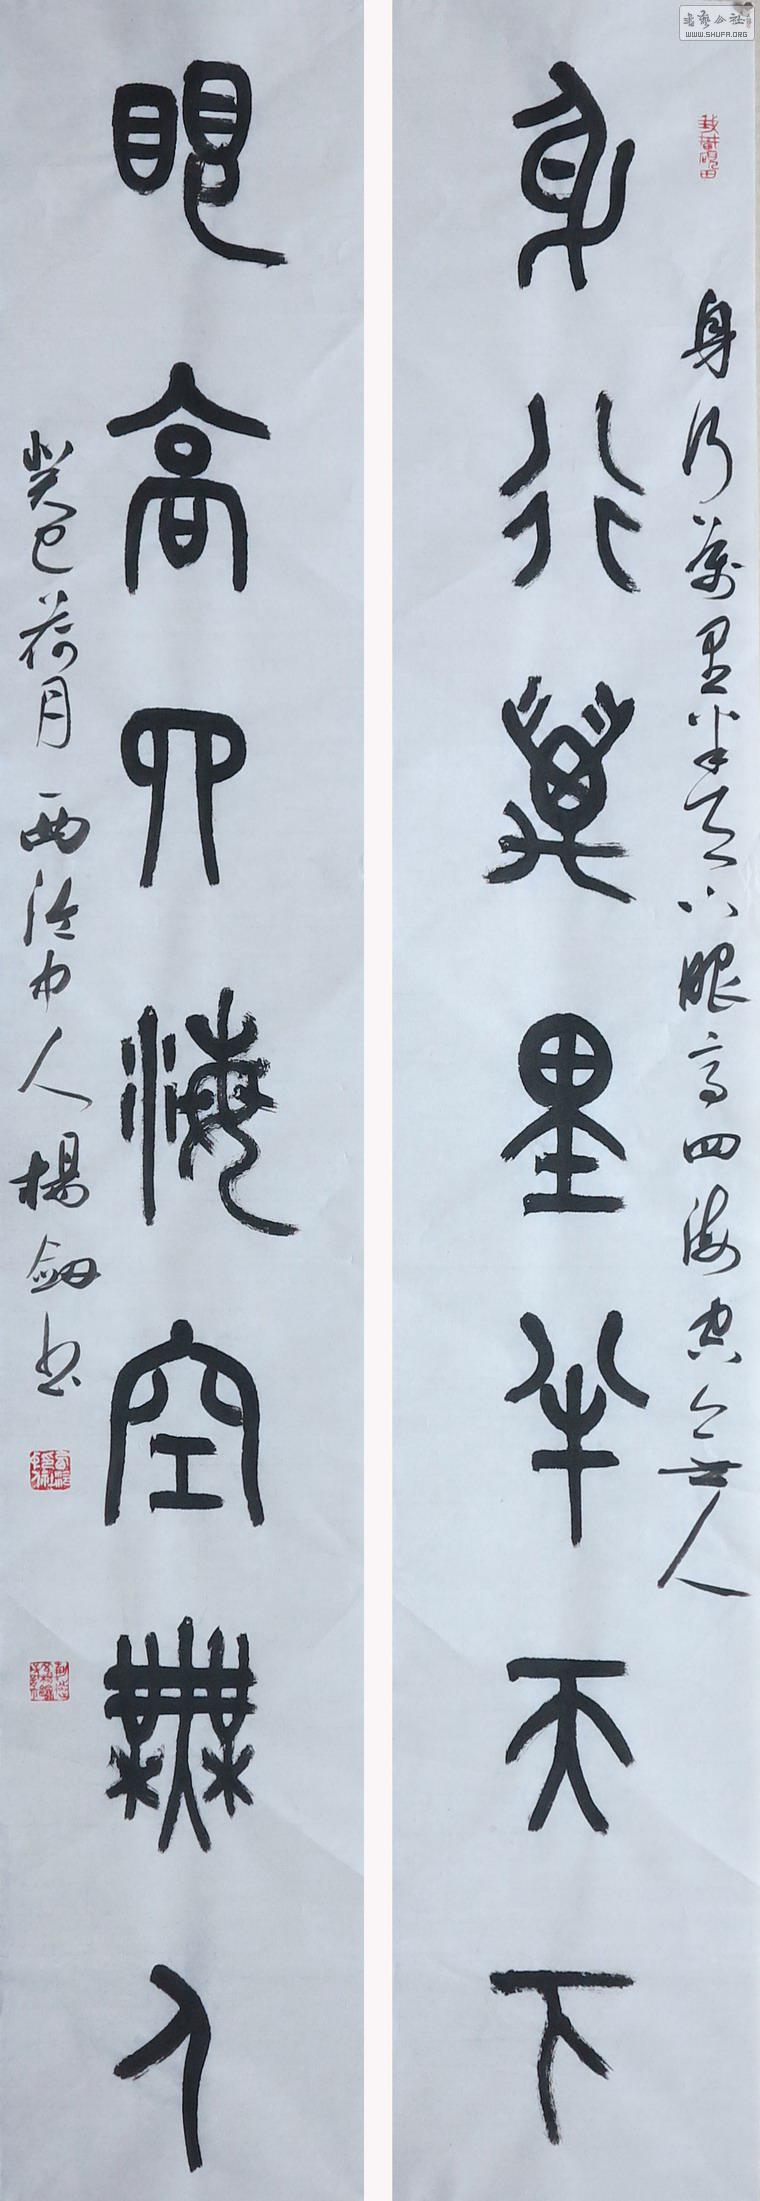 書藝公社
WWW.SHUFA.ORG
身行萬里半天下眼高四海空無人
身行萬里半天下
眼高四海空無人
癸巳荷月西泠中人楊劍書